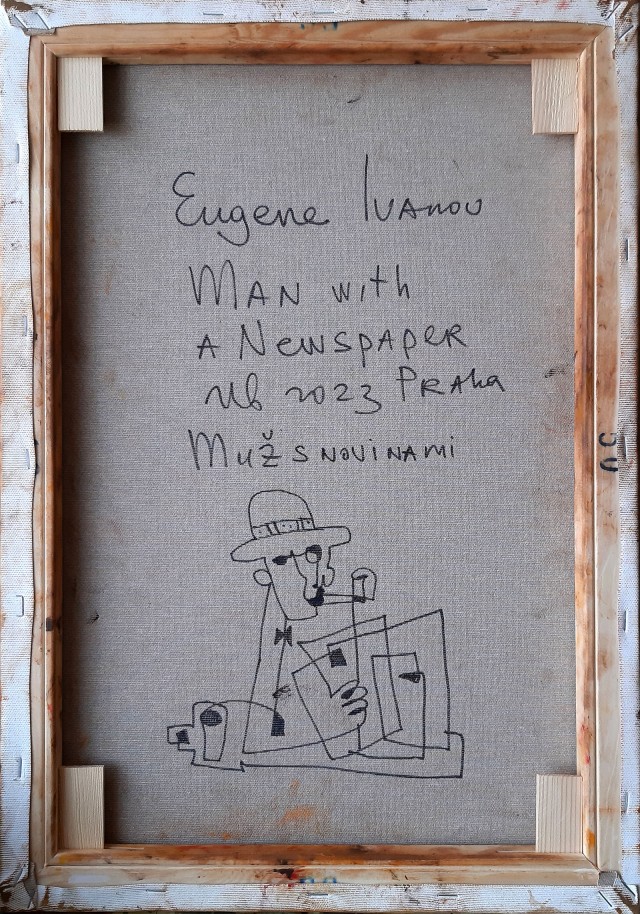 Eugene Ivanov
MAN with
A Newspaper
2023 PRAha
Muž s novinami